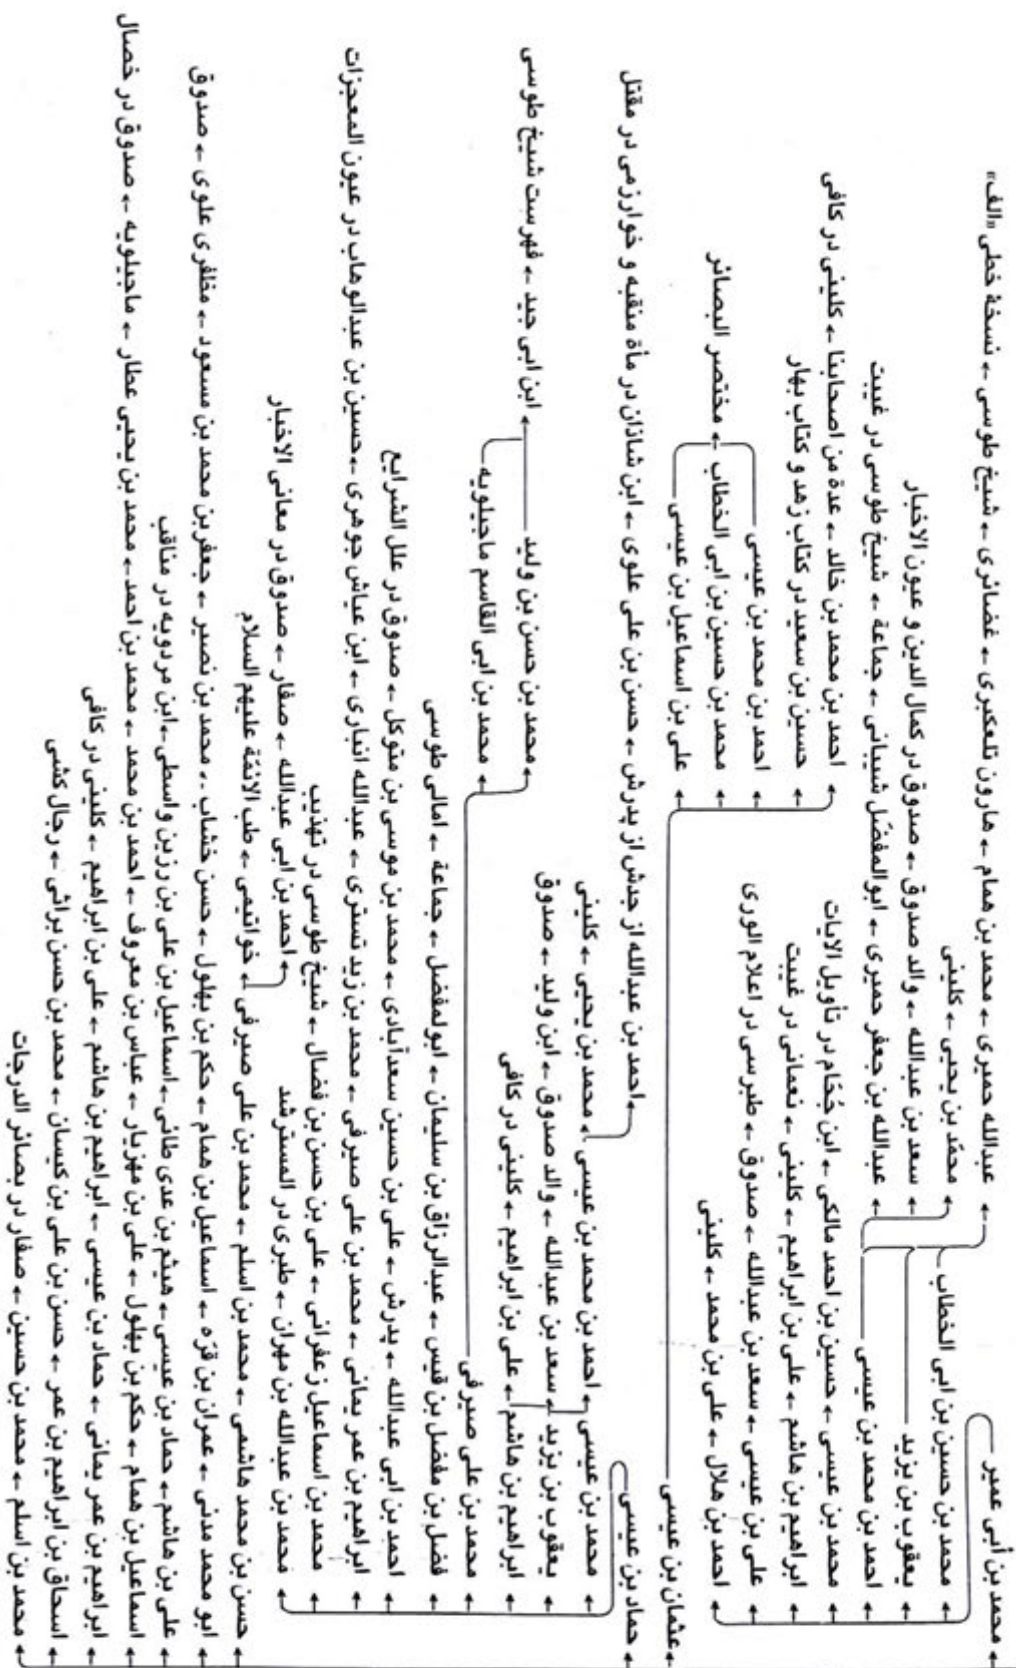 محمد بن أبی عمیر
عبدالله حمیری ← محمد بن همام ← هارون تلعکبری ← غضائری ← شیخ طوسی ← نسخهٔ خطی «الف»
محمد بن حسین بن ابی الخطاب
محمّد بن یحیی ← کلینی
یعقوب بن یزید
سعد بن عبدالله ← والد صدوق ← صدوق در کمال الدین و عیون الاخبار
احمد بن محمد بن عیسی
عبدالله بن جعفر حمیری ← ابوالمفضّل شیبانی ← جماعة ← شیخ طوسی در غیبت
محمد بن عیسی ← حسین بن احمد مالکی ← ابن جُحّام در تأویل الایات
ابراهیم بن هاشم ← علی بن ابراهیم ← کلینی ← نعمانی در غیبت
علی بن عیسی ← سعد بن عبدالله ← صدوق ← طبرسی در اعلام الوری
احمد بن هلال ← علی بن محمد ← کلینی
عثمان بن عیسی
احمد بن محمد بن خالد ← عدة من اصحابنا ← کلینی در کافی
حسین بن سعید در کتاب زهد و کتاب بهار
احمد بن محمد بن عیسی
محمد بن حسین بن ابی الخطاب ← مختصر البصائر
علی بن اسماعیل بن عیسی
حماد بن عیسی
احمد بن عبدالله از جدش از پدرش ← حسن بن علی علوی ← ابن شاذان در مأة منقبه و خوارزمی در مقتل
محمد بن عیسی ← احمد بن محمد بن عیسی ← محمد بن یحیی ← کلینی
یعقوب بن یزید ← سعد بن عبدالله ← والد صدوق ← ابن ولید ← صدوق
ابراهیم بن هاشم ← علی بن ابراهیم ← کلینی در کافی
محمد بن علی صیرفی
محمد بن حسن بن ولید
ابن ابی جید ← فهرست شیخ طوسی
محمد بن ابی القاسم ماجیلویه
فضل بن مفضل بن قیس ← عبدالرزاق بن سلیمان ← ابولمفضل ← جماعة ← امالی طوسی
احمد بن ابی عبدالله ← پدرش ← علی بن حسین سعدآبادی ← محمد بن موسی بن متوکل ← صدوق در علل الشرایع
ابراهیم بن عمر یمانی ← محمد بن علی صیرفی ← محمد بن زید تستری ← عبدالله انباری ← ابن عیاش جوهری ← حسین بن عبدالوهاب در عیون المعجزات
محمد بن اسماعیل زعفرانی ← علی بن حسن بن فضال ← شیخ طوسی در تهذیب
محمد بن عبدالله بن مهران ← طبری در المسترشد
احمد بن ابی عبدالله ← صفار ← صدوق در معانی الاخبار
حسن بن محمد هاشمی ← محمد بن اسلم ← محمد بن علی صیرفی ← خواتیمی ← طب الائمّة علیهم السلام
ابو محمد مدنی ← عمران بن قرّه ← اسماعیل بن همام ← حکم بن بهلول ← حسن خشاب ← محمد بن نصیر ← جعفر بن محمد بن مسعود ← مظفری علوی ← صدوق
علی بن هاشم ← حماد بن عیسی ← هیثم بن عدی طائی ← اسماعیل بن علی بن رزین واسطی ← ابن مردویه در مناقب
اسماعیل بن همام ← حکم بن بهلول ← علی بن مهزیار ← عباس بن معروف ← احمد بن محمد ← محمد بن احمد ← محمد بن یحیی عطار ← ماجیلویه ← صدوق در خصال
ابراهیم بن عمر یمانی ← حماد بن عیسی ← ابراهیم بن هاشم ← علی بن ابراهیم ← کلینی در کافی
اسحاق بن ابراهیم بن عمر ← حسن بن علی بن کیسان ← محمد بن حسن براثی ← رجال کشی
محمد بن اسلم ← محمد بن حسین ← صفار در بصائر الدرجات